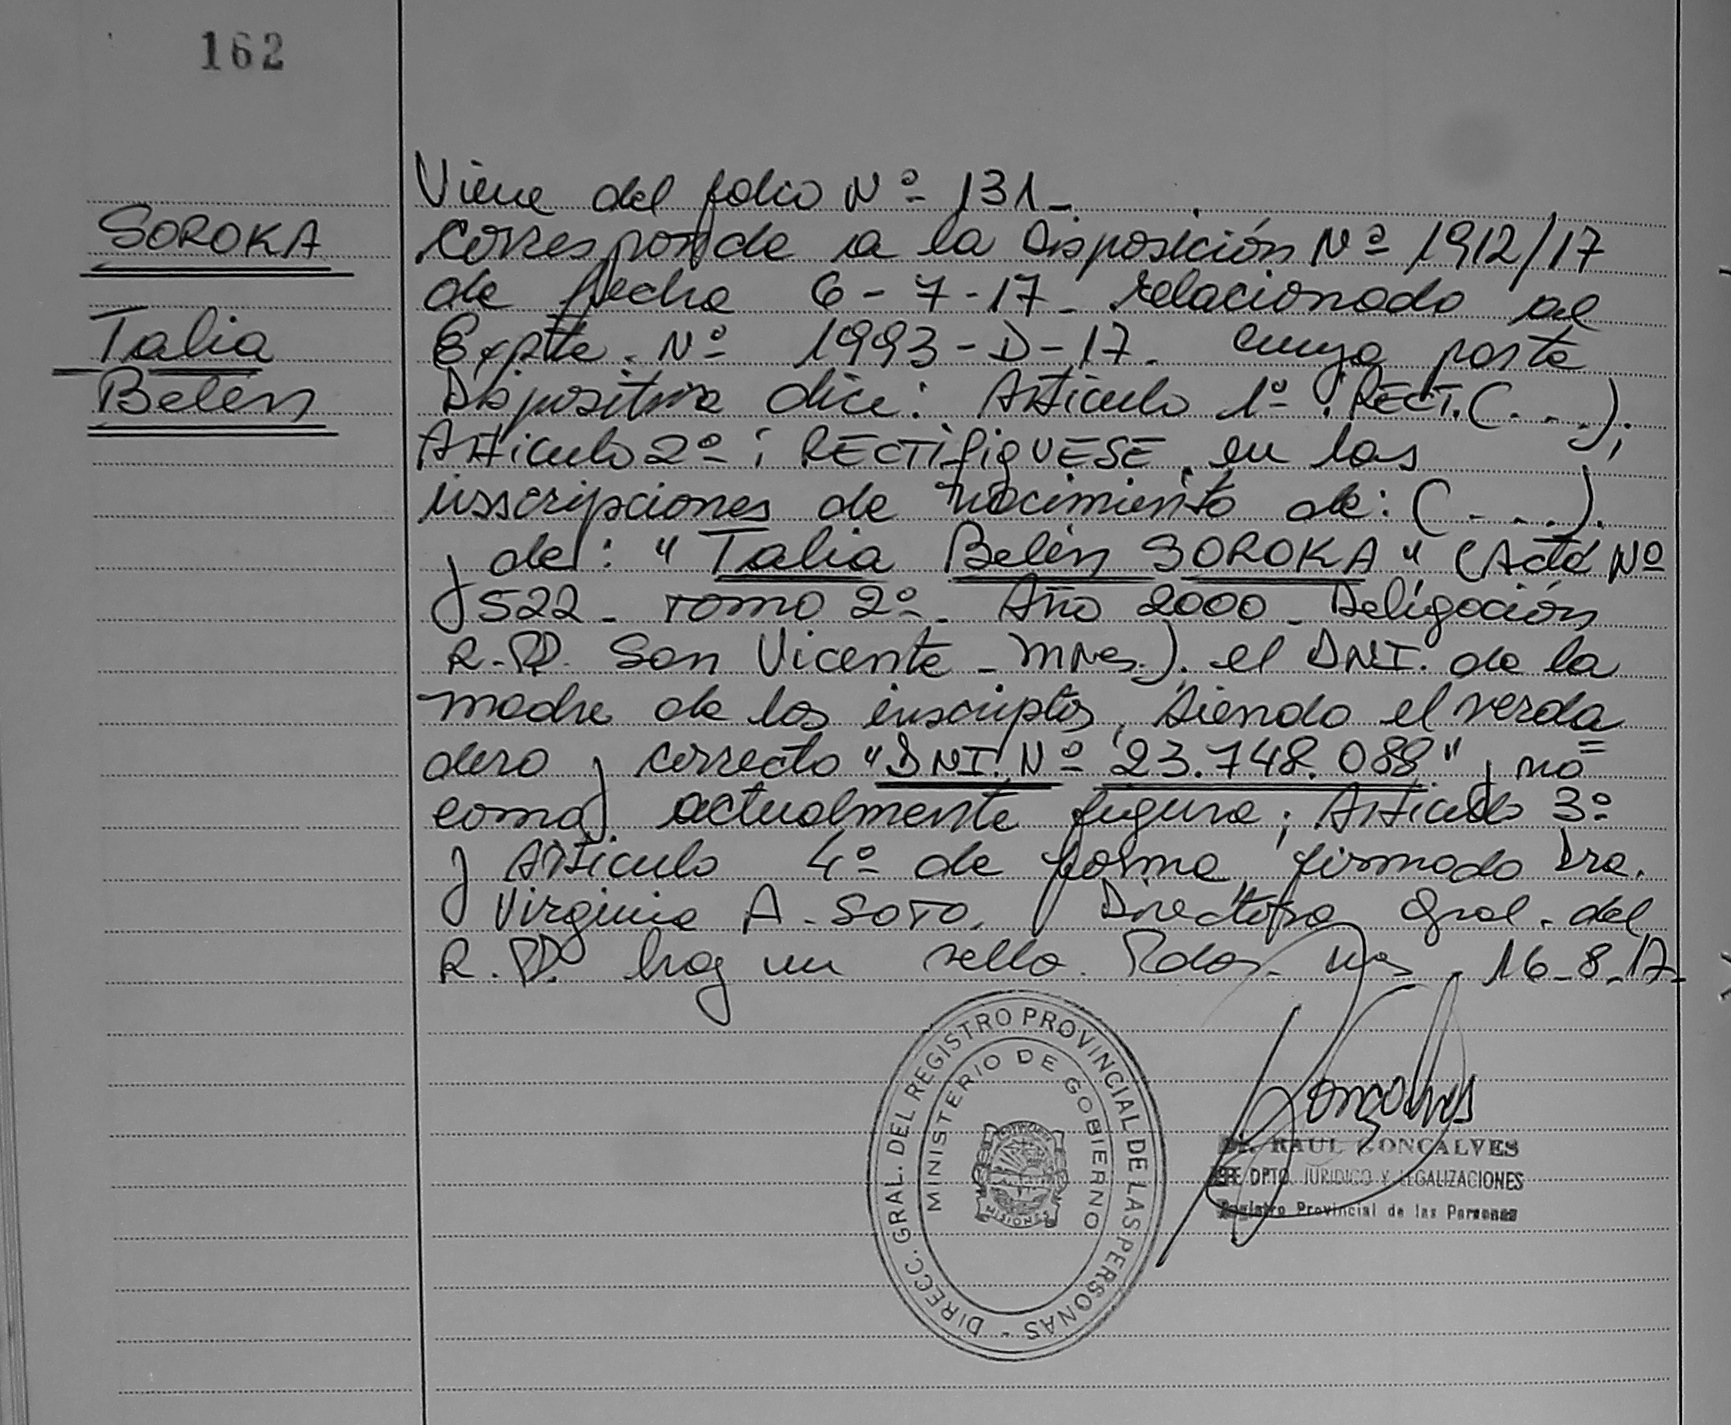 162
SOROKA
Talia
Belén
Viene del folio Nº 131_
Corresponde a la Disposición Nº 1912/17
de fecha 6-7-17_ relacionado al
Expte. Nº 1993-D-17. cuya parte
Dispositiva dice: Artículo 1º: RECT.(...);
Artículo 2º: RECTIFIQUESE, en las
inscripciones de nacimiento de: (...).
y de: "Talia Belén SOROKA" (Acta Nº
522_ Tomo 2º_ Año 2000_ Delegación
R.P.P. San Vicente_Mnes.). el DNI. de la
madre de los inscriptos, siendo el verda
dero y correcto "DNI. Nº 23.748.088" y no
como actualmente figura; Artículo 3º
y Artículo 4º de forma, firmado Dra.
Virginia A. SOTO. Directora Gral. del
R.P.P. hay un sello. Pdas. Mnes. 16_8_17_
DIRECC. GRAL. DEL REGISTRO PROVINCIAL DE LAS PERSONAS -
MINISTERIO DE GOBIERNO
MISIONES
Gonçalves
Dr. RAUL GONCALVES
JEFE DPTO. JURIDICO Y LEGALIZACIONES
Registro Provincial de las Personas